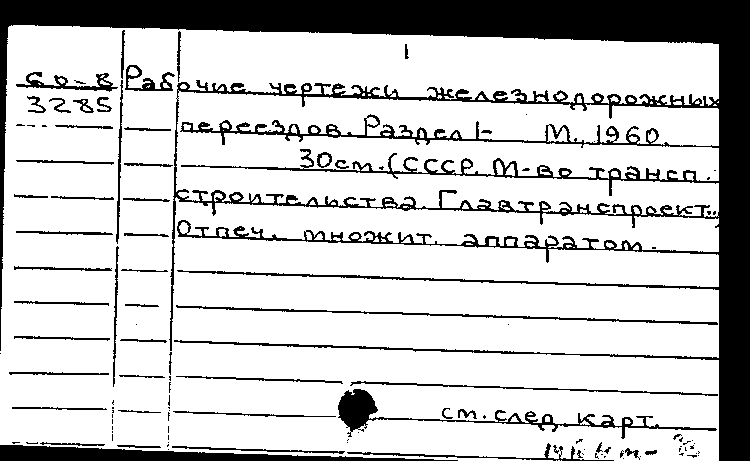 1
60-8 Рабочие чертежи железнодорожных
3285
переездов. Раздел 1- М., 1960.
30см. (СССР. М-во трансп.
строительства. Главтранспроект...,
Отпеч. множит. аппаратом.
см. след. карт.